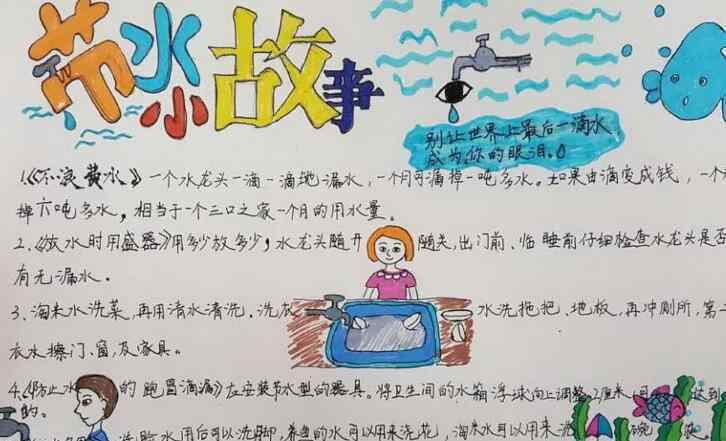 节水小故事
别让世界上最后一滴水
成为你的眼泪。
1.《不浪费水》一个水龙头一滴一滴地漏水,一个月可漏掉一吨多水。如果由滴变成钱,一个
掉六吨多水,相当于一个三口之家一个月的用水量。
2、《放水时用盛器》用多少放多少,水龙头随开随关,出门前、临睡前仔细检查水龙头是否
有无漏水。
3、淘米水洗菜,再用清水清洗。洗衣水洗拖把、地板,再冲厕所,第二
衣水擦门、窗,及家具。
4、《防止水的跑冒滴漏》在安装节水型的器具。将卫生间的水箱浮球向上调整2厘米 达到
的。
洗脸水用后可以洗脚,养鱼的水可以用来浇花,淘米水可以用来洗 碗